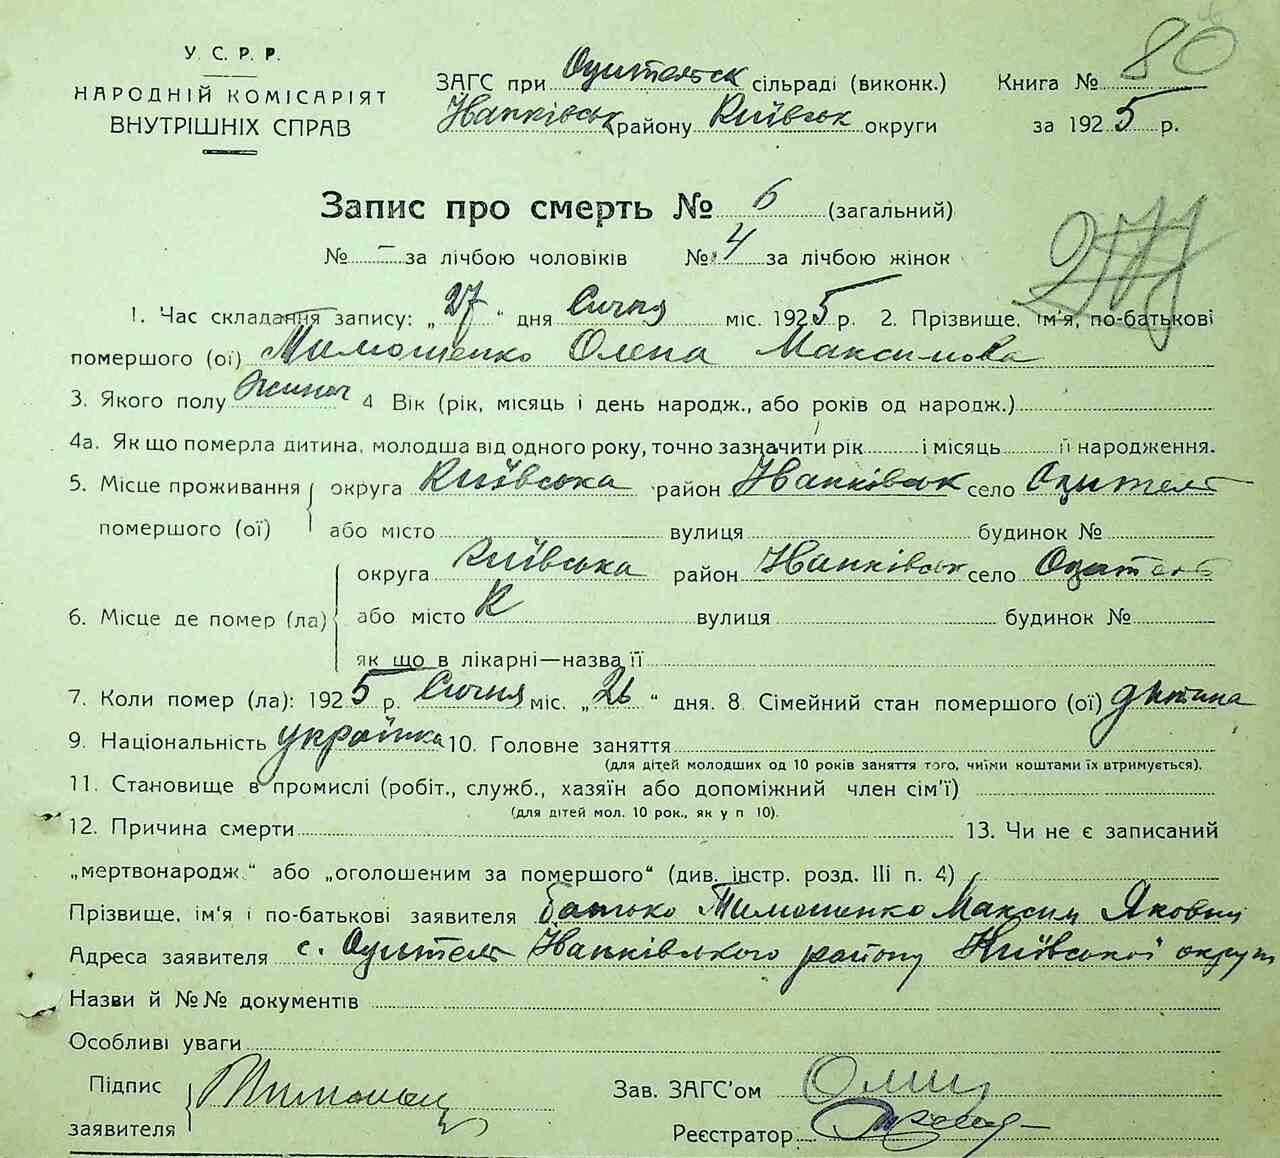 У. С. Р. Р.
НАРОДНІЙ КОМІСАРІЯТ
ВНУТРІШНІХ СПРАВ
ЗАГС при Одительск сільраді (виконк.)
Іванківськ району Київськ округи
Книга № 80
за 1925 р.
Запис про смерть № 6 (загальний)
№ – за лічбою чоловіків № 4 за лічбою жінок
1. Час складання запису: „27" дня Січня міс. 1925 р. 2. Прізвище, ім'я, по-батькові
помершого (ої) Тимошенко Олена Максимова
3. Якого полу 4 Вік (рік, місяць і день народж., або років од народж.)
4а. Як що померла дитина, молодша від одного року, точно зазначити рік і місяць її народження.
5. Місце проживання округа Київська район Іванківськ село
помершого (ої) або місто вулиця будинок №
округа Київська район Іванківськ село
6. Місце де помер (ла) або місто К вулиця будинок №
як що в лікарні—назва її
7. Коли помер (ла): 1925 р. Січня міс. „26" дня. 8. Сімейний стан помершого (ої) дитина
9. Національність українка 10. Головне заняття
(для дітей молодших од 10 років заняття того, чиїми коштами їх втримується).
11. Становище в промислі (робіт., служб., хазяїн або допоміжний член сім'ї)
(для дітей мол. 10 рок., як у п 10).
12. Причина смерти 13. Чи не є записаний
„мертвонародж." або „оголошеним за помершого" (див. інстр. розд. III п. 4)
Прізвище, ім'я і по-батькові заявителя батько Тимошенко Максим Якович
Адреса заявителя с. Іванківського району Київської округи
Назви й №№ документів
Особливі уваги
Підпис
заявителя
Зав. ЗАГС'ом
Реєстратор